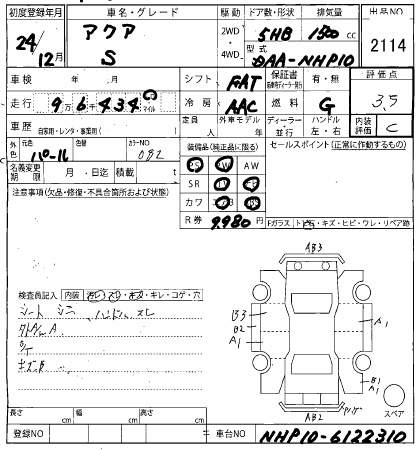 初度登録年月 車名・グレード 駆動 ドア数・形状 排気量 出品NO
24/12月 アクア S 2WD・4WD・ 5HB 1500 cc 2114
型式 DAA-NHP10
車検 年 月 シフト FAT 保証書 有・無 評価点 3.5
走行 9万6千434 マイル 冷房 AAC 燃料 G 内装評価 C
車歴 自家用・レンタ・事業用( ) 定員 人 外車モデル 年 ディーラー・並行 ハンドル 左・右
外色 元色 パール 色替 カラーNO 082
装備品(純正品に限る) セールスポイント(正常に作動するもの)
PS PW AW
名義変更期限 月 日迄 積載 t
SR
注意事項(欠品・修復・不具合箇所および状態)
カワ
R券 9,980円
Fガラス トビ・キズ・ヒビ・ワレ・リペア跡
AB3
検査員記入 内装 キレ・コゲ・穴
シート シミ ハンドル スレ
B3
B2
A1
A1
B1
A1
AB2
スペア
長さ cm 幅 cm 高さ cm
登録NO 車台NO NHP10-6122310